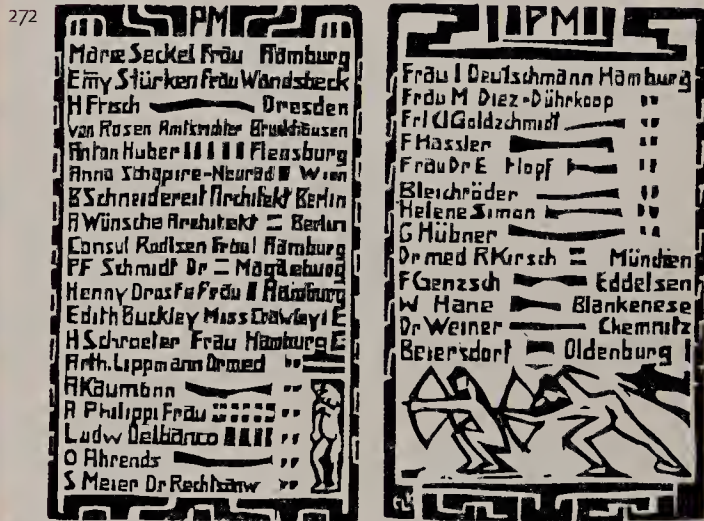 272
PM
Marie Seckel Frau Hamburg
Emy Stürken Frau Wandsbeck
H Frisch Dresden
Von Rosen Amtsrichter Bruchhausen
Anton Huber Flensburg
Anna Schapire-Neurad Wien
B Schneidereit Architekt Berlin
A Wünsche Architekt Berlin
Consul Rodtsen Frau Hamburg
PF Schmidt Dr Magdeburg
Henny Droste Frau Hamburg
Edith Buckley Miss Crawley I E
H Schroeter Frau Hamburg E
Arth. Lippmann Dr med "
A Kaumann "
A Philippi Frau "
Ludw Delbanco "
O Ahrends "
S Meier Dr Rechtsanw "
PM
Frau I Deutschmann Hamburg
Frau M Diez-Dührkoop "
Frl Cl Goldzchmidt "
F Hassler "
Frau Dr E Hopf "
Bleichröder "
Helene Simon "
G Hübner "
Dr med R Kirsch München
F Genzsch Eddelsen
W Hane Blankenese
Dr Weiner Chemnitz
Beiersdorf Oldenburg